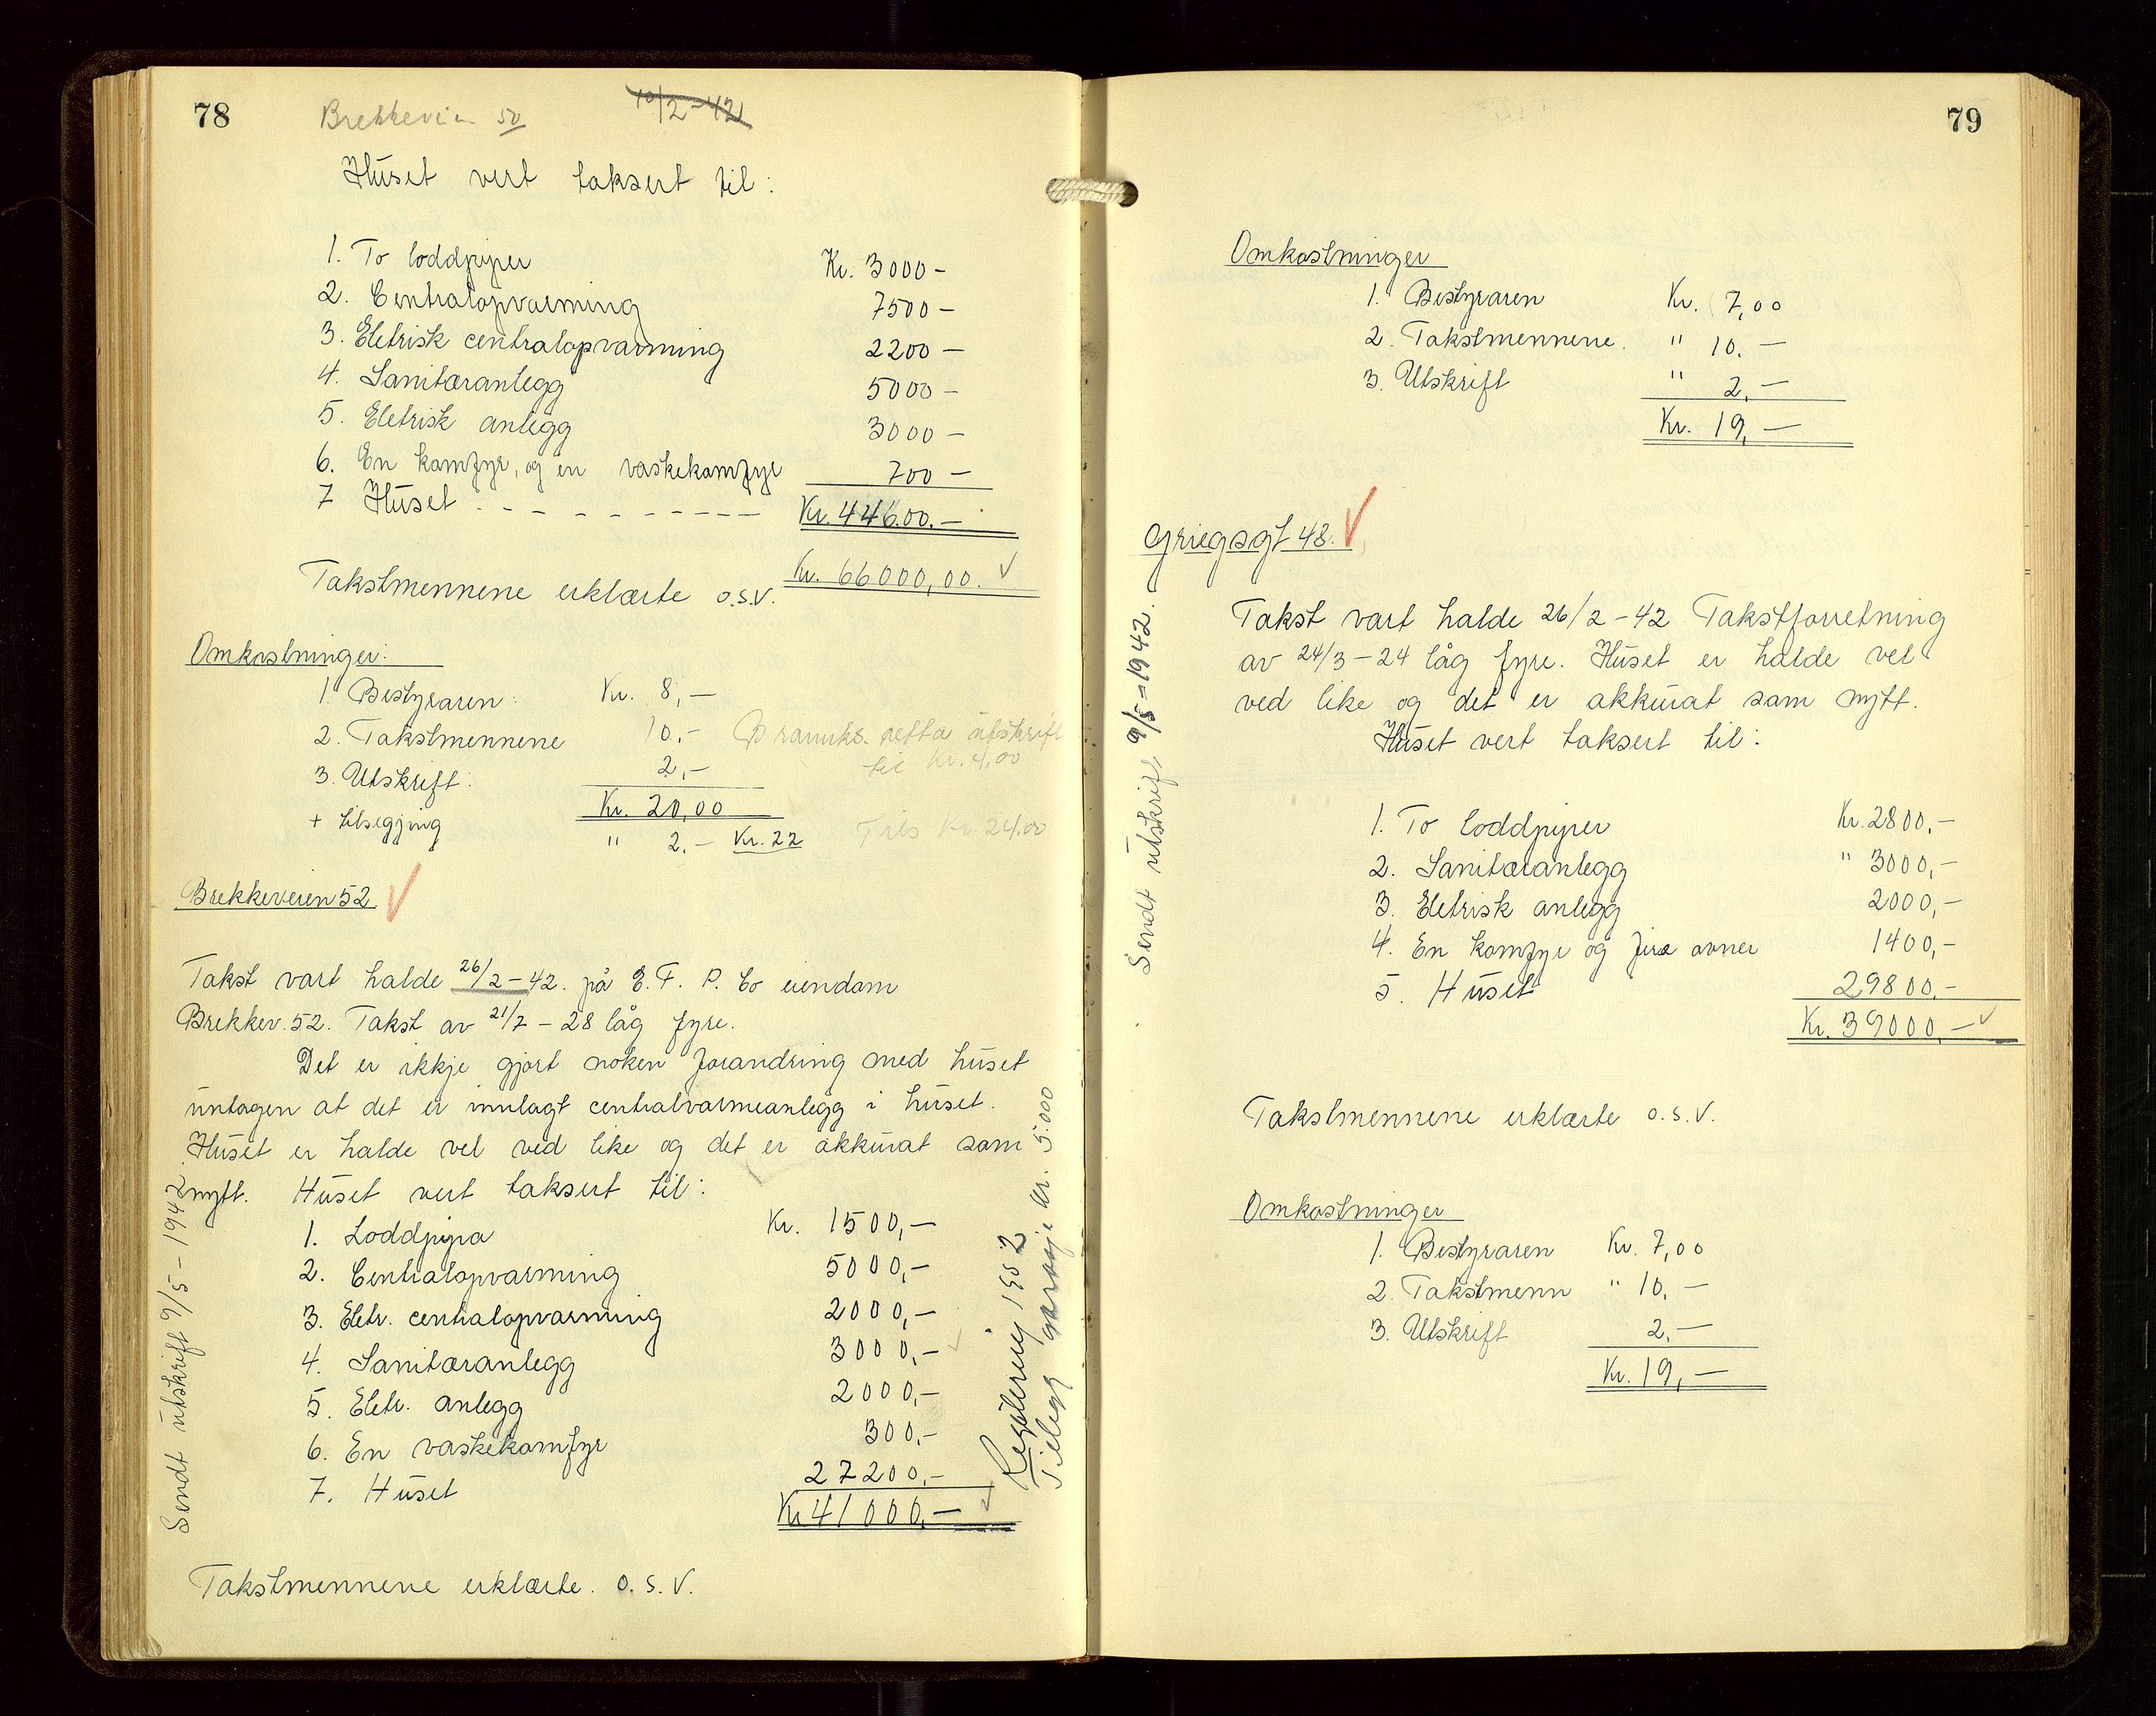 78
Brekkevein 50
10/2-42
Huset vert taksert til:
1. To loddpiper Kr. 3000 -
2. Centralopvarming 7500 -
3. Eletrisk centralopvarming 2200 -
4. Sanitæranlegg 5000 -
5. Eletrisk anlegg 3000 -
6. En komfyr, og en vaskekomfyr 700 -
7 Huset - - - - - - - - - - Kr. 44600.-
Kr. 66000,00. ✓
Takstmennene erklærte o.s.v.
Omkostninger:
1. Bestyraren: Kr. 8,-
2. Takstmennene 10.- Brannks. retta utskrift
3. Utskrift: 2,- til kr. 4.00
Kr. 20,00
+ tilsegjing " 2.- Kr. 22 Tils Kr 24.00
Brekkeveien 52 ✓
Takst vart halde 26/2-42. på E. F. P. Co eiendom
Brekkev. 52. Takst av 21/7 - 28 låg fyre.
Det er ikkje gjort noken forandring med huset
untagen at det er innlagt centralvarmeanlegg i huset.
Huset er halde vel ved like og det er akkurat som
nytt. Huset vert taksert til:
1. Loddpipa Kr. 1500,-
2. Centralopvarming 5000,-
3. Eletr. centralopvarming 2000,-
4. Sanitæranlegg 3000,- ✓
5. Eletr. anlegg 2000,-
6. En vaskekomfyr 300,-
7. Huset 27200,-
Kr 41000,- ✓
Takstmennene erklærte. o. s. v.
Sendt utskrift 9/5 - 1942.
Regulering 1952
Tillegg garasje kr. 5.000
79
Omkostninger
1. Bestyraren Kr. 7,00
2. Takstmennene. " 10. -
3. Utskrift " 2,-
Kr. 19,-
Griegsgt 48. ✓
Takst vart halde 26/2 - 42 Takstforretning
av 24/3 - 24 låg fyre. Huset er halde vel
ved like og det er akkurat som nytt.
Huset vert taksert til:
1. To loddpiper Kr. 2800,-
2. Sanitæranlegg " 3000,-
3. Eletrisk anlegg 2000,-
4. En komfyr og fire ovner 1400,-
5. Huset 29800,-
Kr. 39000,- ✓
Takstmennene erklærte o. s. v.
Omkostninger
1. Bestyraren Kr. 7,00
2. Takstmenn " 10. -
3. Utskrift 2,-
Kr. 19,-
Sendt utskrift 9/5 - 1942.